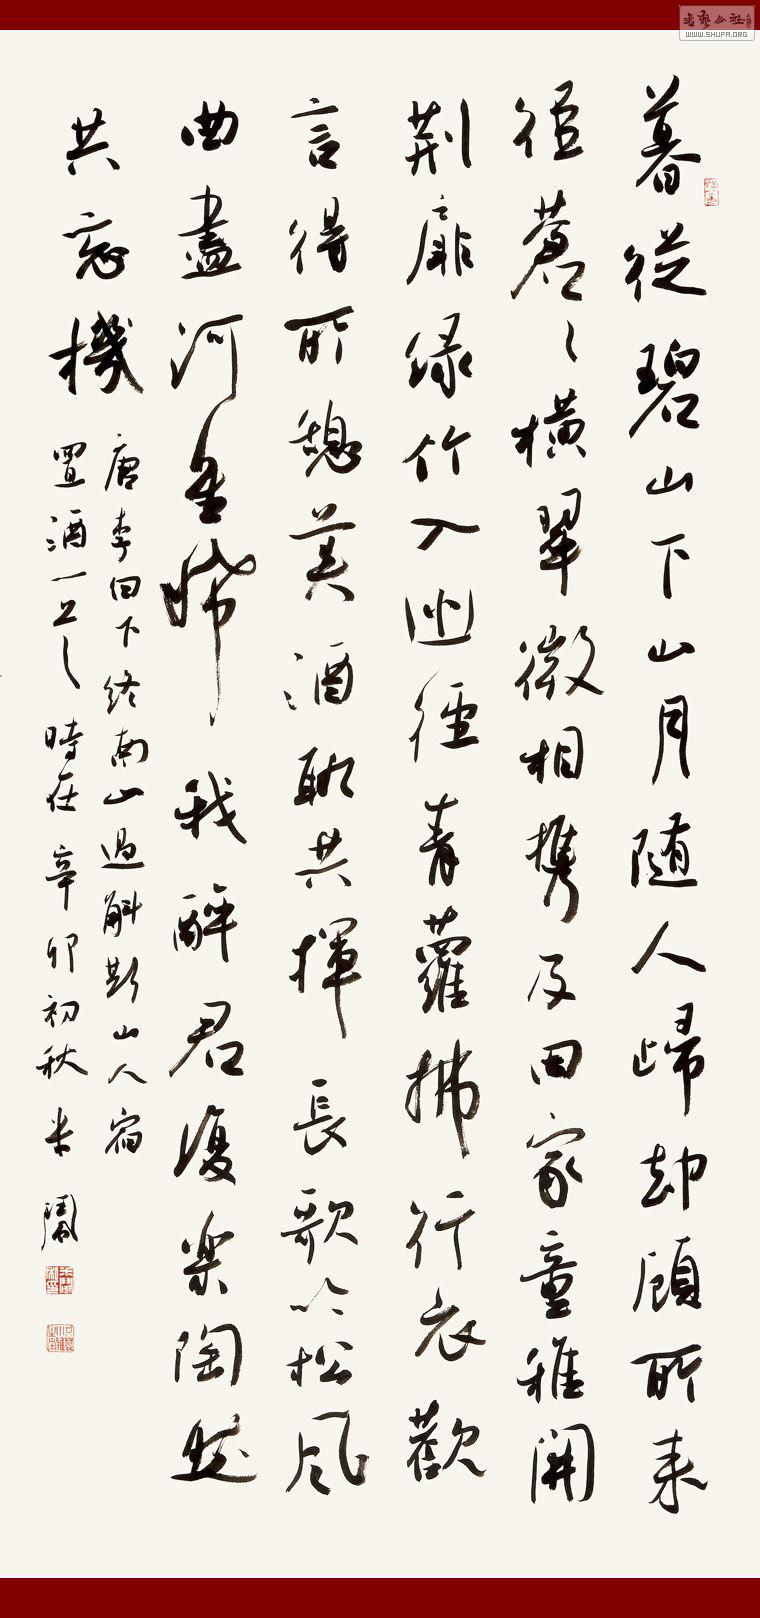 書藝公社
WWW.SHUFA.ORG
暮從碧山下山月随人歸却顧所来
徑蒼々橫翠微相携及田家童稚開
荆扉绿竹入幽徑青蘿拂行衣歡
言得所憩美酒聊共揮長歌吟松風
曲盡河星稀我醉君復樂陶然
共忘機
唐李白下终南山過斛斯山人宿
置酒一時在辛卯初秋米鬧